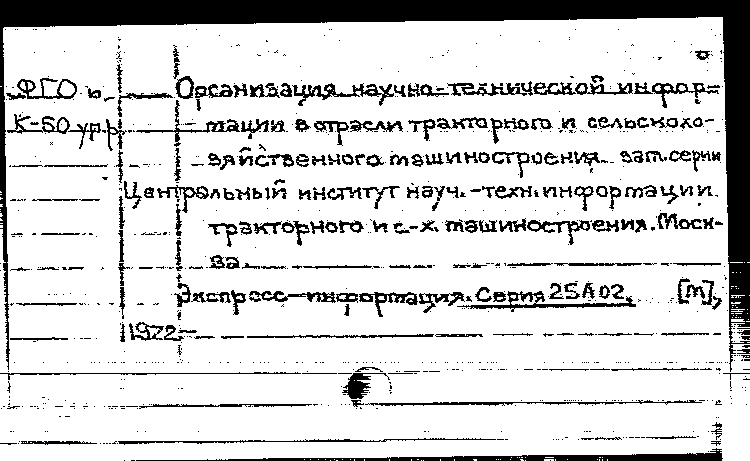 ФГО и Организация научно-технической инфор-
К-50 упр мации в отрасли тракторного и сельскохо-
зяйственного машиностроения. заг.серии
Центральный институт науч.-техн.информации
тракторного и с-х. машиностроения. Моск-
ва.
Экспресс-информация. Серия 25А02. [М],
1972-